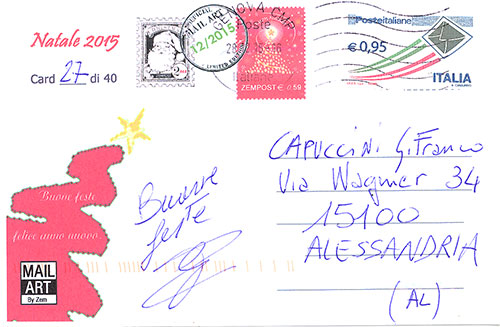 Natale 2015
Card 27 di 40
SPECIAL MAIL ART
12/2015
LIMITED EDITION
GENOVA CMP
Poste
Italiane
ZEMPOST € 0,59
Posteitaliane
€ 0,95
ITALIA
Buone feste
felice anno nuovo
MAIL
ART
By Zem
Buone
feste
CAPUCCINI G.Franco
Via Wagner 34
15100
ALESSANDRIA
(AL)